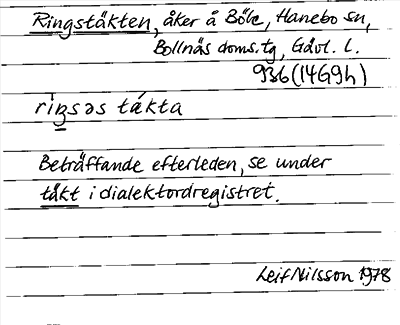 Ringstäkten, åker å Böle, Hanebo sn,
Bollnäs doms.tg, Gävl. l.
936 (14G9h)
Beträffande efterleden, se under
täkt i dialektordregistret.
Leif Nilsson 1978